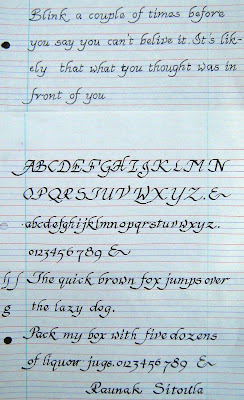 Blink a couple of times before
you say you can't belive it. It's lik-
ely that what you thought was in
front of you
ABCDEFGHIJKLMN
OPQRSTUVWXYZ. &
abcdefghijklmnopqrstuvwxyz.
0123456789 &
The quick brown fox jumps over
g the lazy dog.
Pack my box with five dozens
of liquour jugs. 0123456789 &
Raunak Sitoula